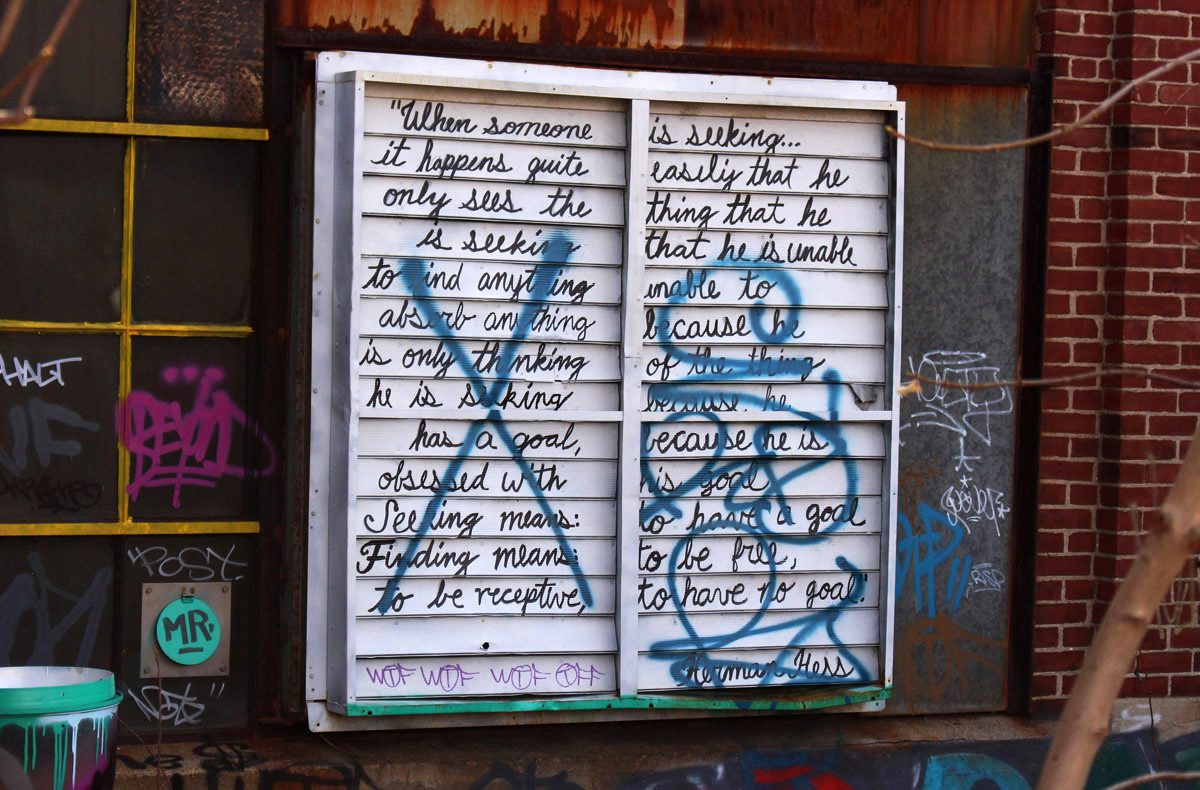 "When someone is seeking...
it happens quite easiliy that he
only sees the thing that he
is seeking that he is unable
to find anything unable to
absorb anything because he
is only thinking of the thing
he is seeking because he
has a goal, because he is
obsessed with his goal
Seeking means: to have a goal
Finding means: to be free,
to be receptive, to have no goal."
WTF WTF WTF OFF
Herman Hess
"POST
MR.
NO$"